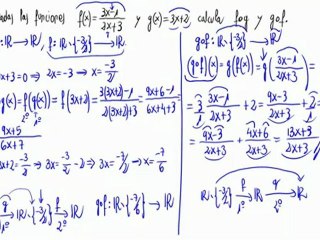 dadas las funciones f(x)= (3x-1)/(2x+3) y g(x)=3x+2 calcula fog y gof.
f: ℝ∖{-3/2} → ℝ
2x+3=0 → 2x=-3 → x=-3/2
g(x)=f(g(x))=f(3x+2)= (3(3x+2)-1)/(2(3x+2)+3) = (9x+6-1)/(6x+4+3)
(9x+5)/(6x+7)
3x+2=-3/2 → 3x=-3/2-2 → 3x=-7/2 → x=-7/6
g → ℝ∖{-3/2} f → ℝ
gof: ℝ∖{-3/2} → ℝ
(gof)(x)=g(f(x))=g((3x-1)/(2x+3))=
=3 (3x-1)/(2x+3) +2= (9x-3)/(2x+3) +2=
= (9x-3)/(2x+3) + (4x+6)/(2x+3) = (13x+3)/(2x+3)
ℝ∖{-3/2} f → ℝ g → ℝ
1º 2º